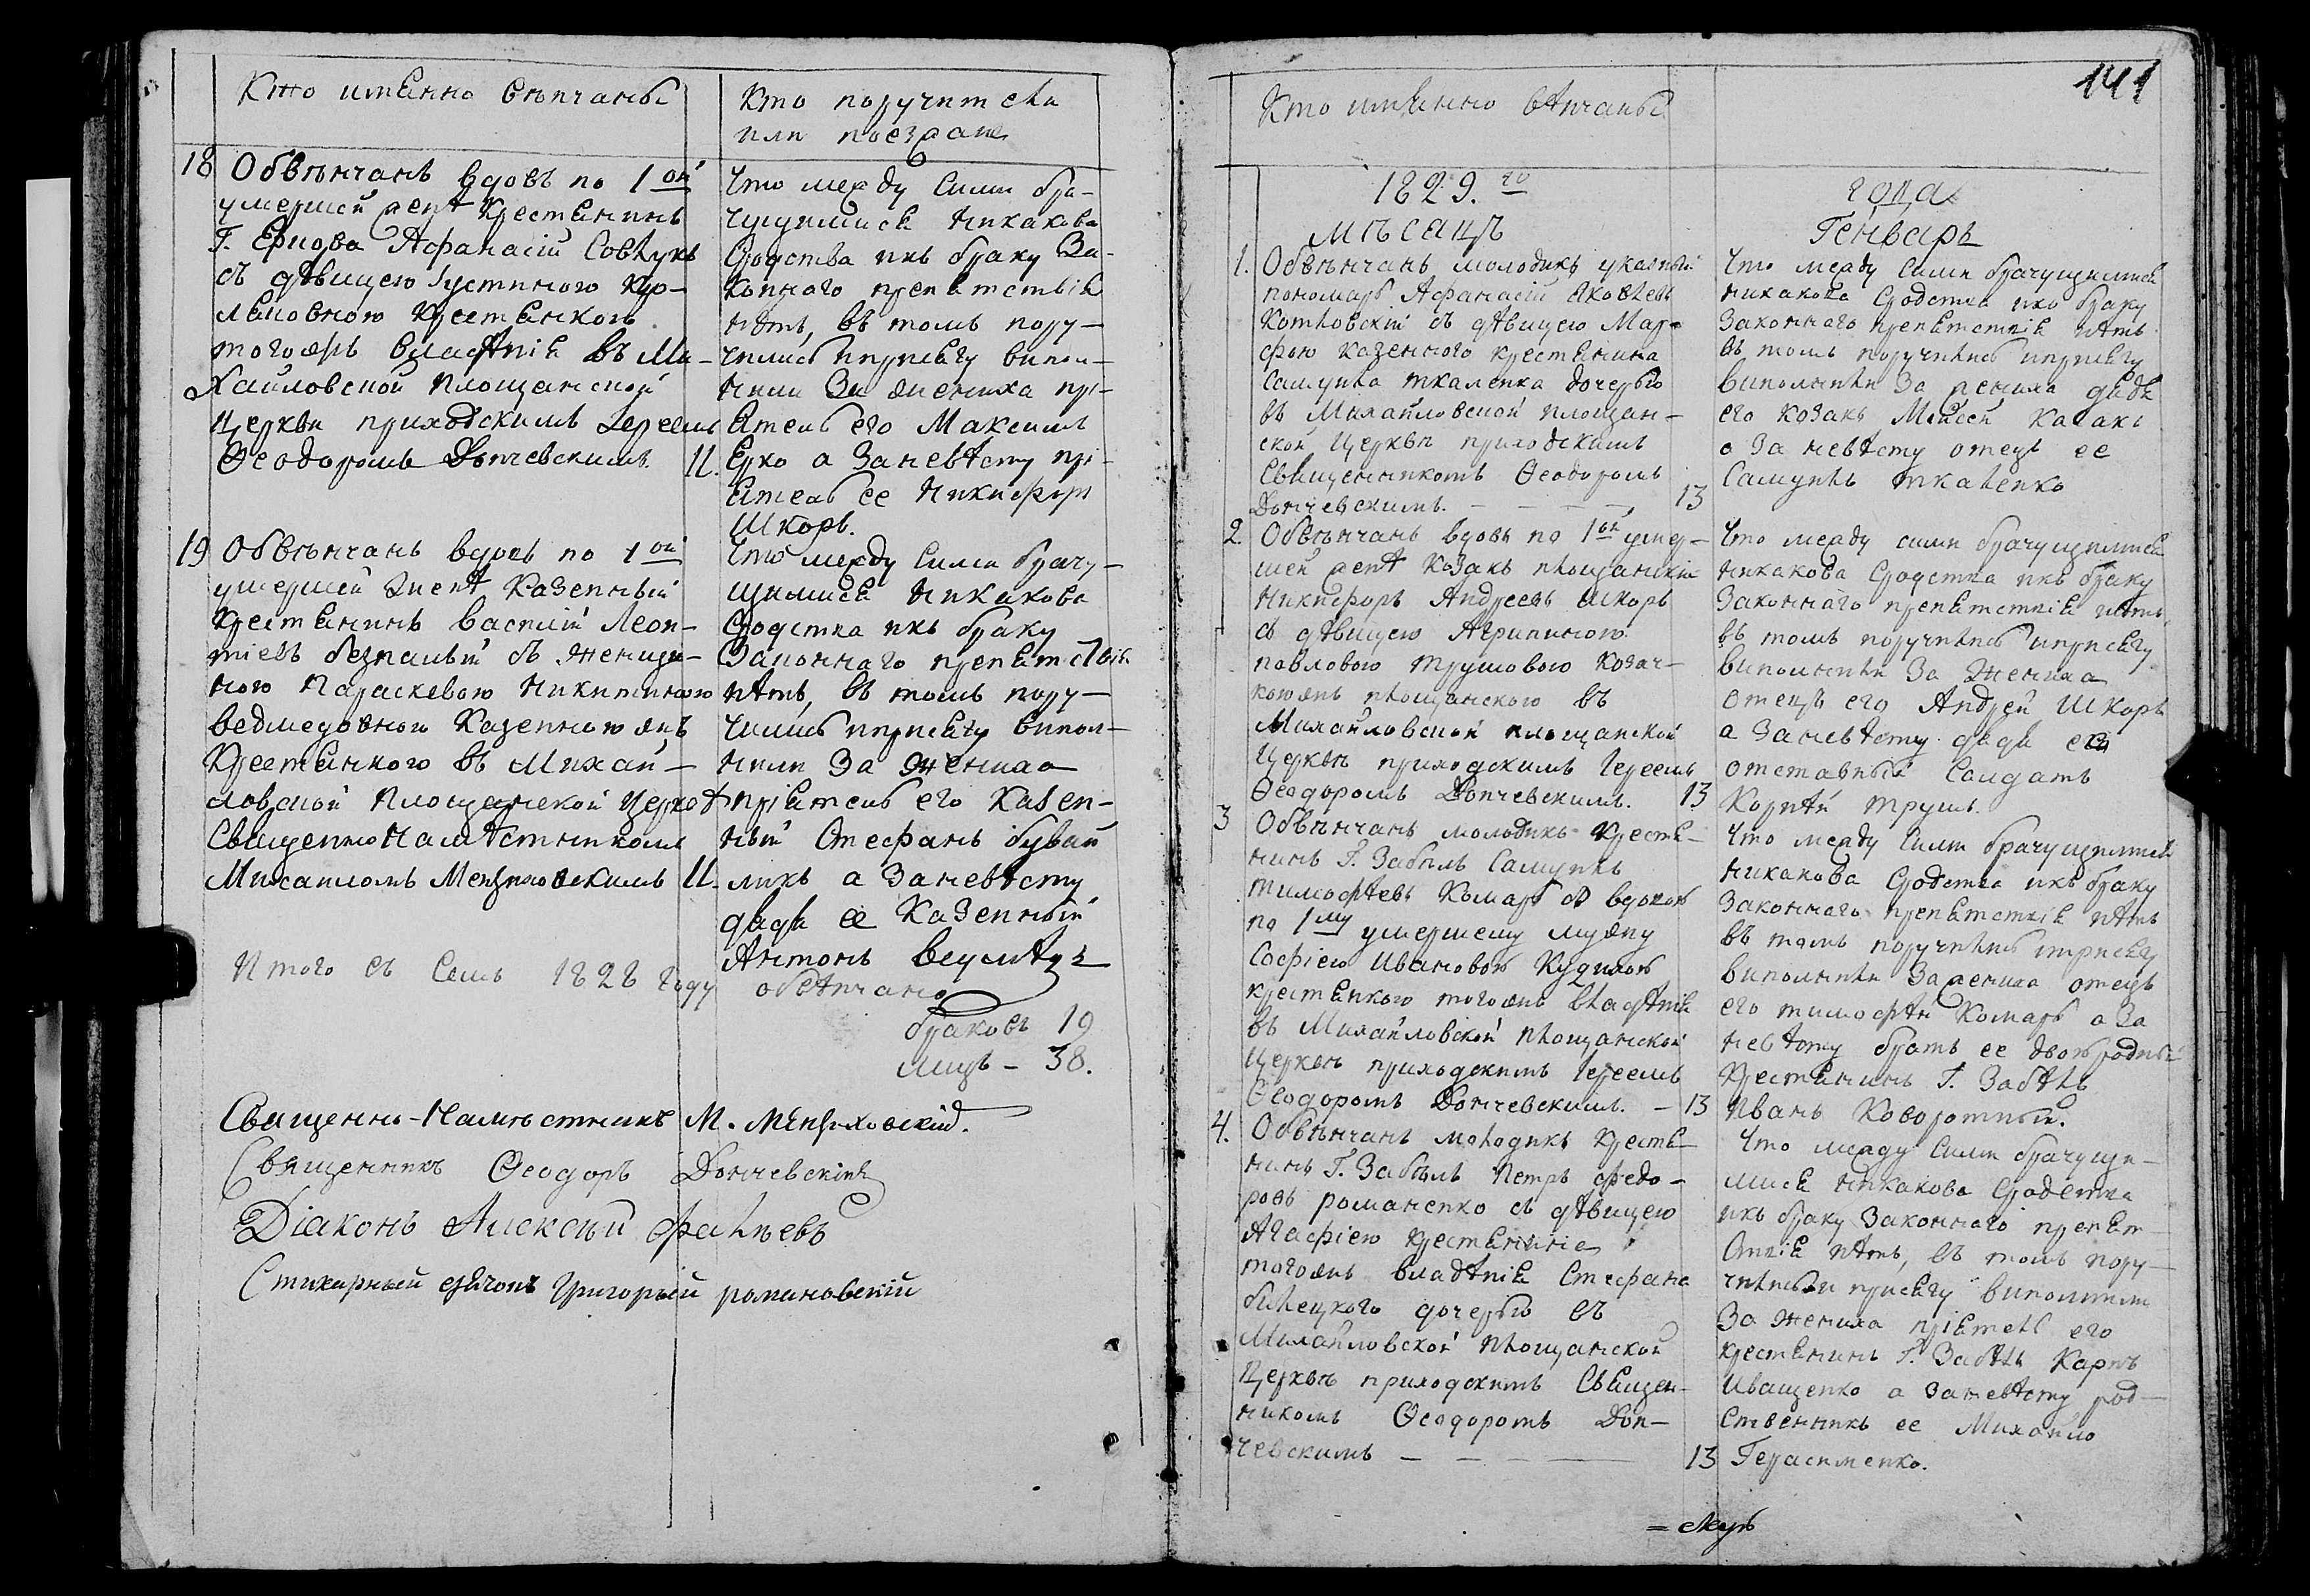 Кто имянно вѣнчаны
Кто поручители
или поезжане
18 Обвѣнчанъ вдовъ по 1ой
умершей женѣ Крестянинъ
Г. Афанасій
съ дѣвицею Іустиною
Крестянкою
тогожъ владѣнія въ Ми-
хайловской площанской
Церкви приходскимъ Іереемъ
Ѳеодоромъ Дончевскимъ 11.
Что между сими бра-
чущимися никакова
Сродства икъ браку За-
коннаго препятствія
нѣтъ, въ томъ пору-
чились иприсягу випол-
нили За жениха прі-
ятель его Максимъ
Ерко а Заневѣсту прі-
ятель ее Никифоръ
Шкоръ.
19 Обвѣнчанъ вдовъ по 1ой
умершей женѣ Казенный
Крестянинъ василій Леон-
тіевъ съ женщи-
ною Параскевою Никитиною
ведмедовною Казенною жъ
Крестянкою въ Михай-
ловской Площанской Церквѣ
Священно Намѣстникомъ
Михаиломъ 11.
Что между сими брачу-
щимися Никакова
Сродства икъ браку
Законнаго препятствія
нѣтъ, въ томъ пору-
чились иприсягу випол-
нили За жениха
пріятель его Казен-
ный Стефанъ бувай
ликъ а Заневѣсту
дядя ее Казенный
Антонъ
Итого въ Семъ 1828 году обвѣнчано
браковъ 19
лицъ - 38.
Священно-Намѣстникъ М.
Священникъ Ѳеодоръ Дончевскій
Діаконъ Алексѣй
Стихарный Григорій романовскій
141
Кто имянно вѣнчаны
1829.го года
Мѣсацъ Генварь
1. Обвѣнчанъ молодикъ указный
пономарь Афанасій Яковлевъ
Котловскій съ дѣвицею Мар-
фою казенного крестянина
Самуила ткаленка дочерью
въ Михайловской площан-
ской Церквѣ приходскимъ
Священникомъ Ѳеодоромъ
Дончевскимъ. 13
Что между сими брачущимися
никакова Сродства икъ браку
Законнаго препятствія нѣтъ
въ томъ поручились иприсягу
виполнили За жениха дядя
его козакъ Мойсей
а За невѣсту отецъ ее
Самуилъ ткаленко
2. Обвѣнчанъ вдовъ по 1ой умер-
шей женѣ козакъ площанскій
Никифоръ Андреевъ Шкоръ
съ дѣвицею Агрипиною
павловою трушовою козач-
коюжъ площанскою въ
Михайловской площанской
Церквѣ приходскимъ Іереемъ
Ѳеодоромъ Дончевскимъ. 13
Что между сими брачущимися
никакова Сродства икъ браку
Законнаго препятствія нѣтъ
въ томъ поручились иприсягу
виполнили За Жениха
отецъ его Андрей Шкоръ
а Заневѣсту дядя ея
отставный Солдатъ
Корнѣй трушъ.
3 Обвѣнчанъ молодикъ Крестя-
нинъ Г. Самуилъ
тимофѣевъ Комаръ съ вдовою
по 1му умершему мужу
Софіею Ивановою
крестянкою тогожъ владѣнія
въ Михайловской площанской
Церквѣ приходскимъ Іереемъ
Ѳеодоромъ Дончевскимъ. - 13
Что между сими брачущимися
никакова Сродства икъ браку
Законнаго препятствія нѣтъ
въ томъ поручились иприсягу
виполнили Зажениха отецъ
его тимофѣй Комаръ а За
невѣсту братъ ее двоюродный
Крестянинъ Г.
Иванъ
4. Обвѣнчанъ молодикъ Крестя-
нинъ Г. Петръ федо-
ровъ романенко съ дѣвицею
Агафіею
тогожъ владѣнія Стефана
билецкого дочерью въ
Михайловской площанской
Церквѣ приходскимъ Священ-
никомъ Ѳеодоромъ Дон-
чевскимъ 13
Что между сими брачущи-
мися никакова Сродства
икъ браку Законнаго препят-
ствія нѣтъ, въ томъ пору-
чились и присягу виполнили
За жениха пріятель его
крестянинъ Г. Карпъ
Иващенко а Заневѣсту род-
ственникъ ее Михайло
Герасименко.